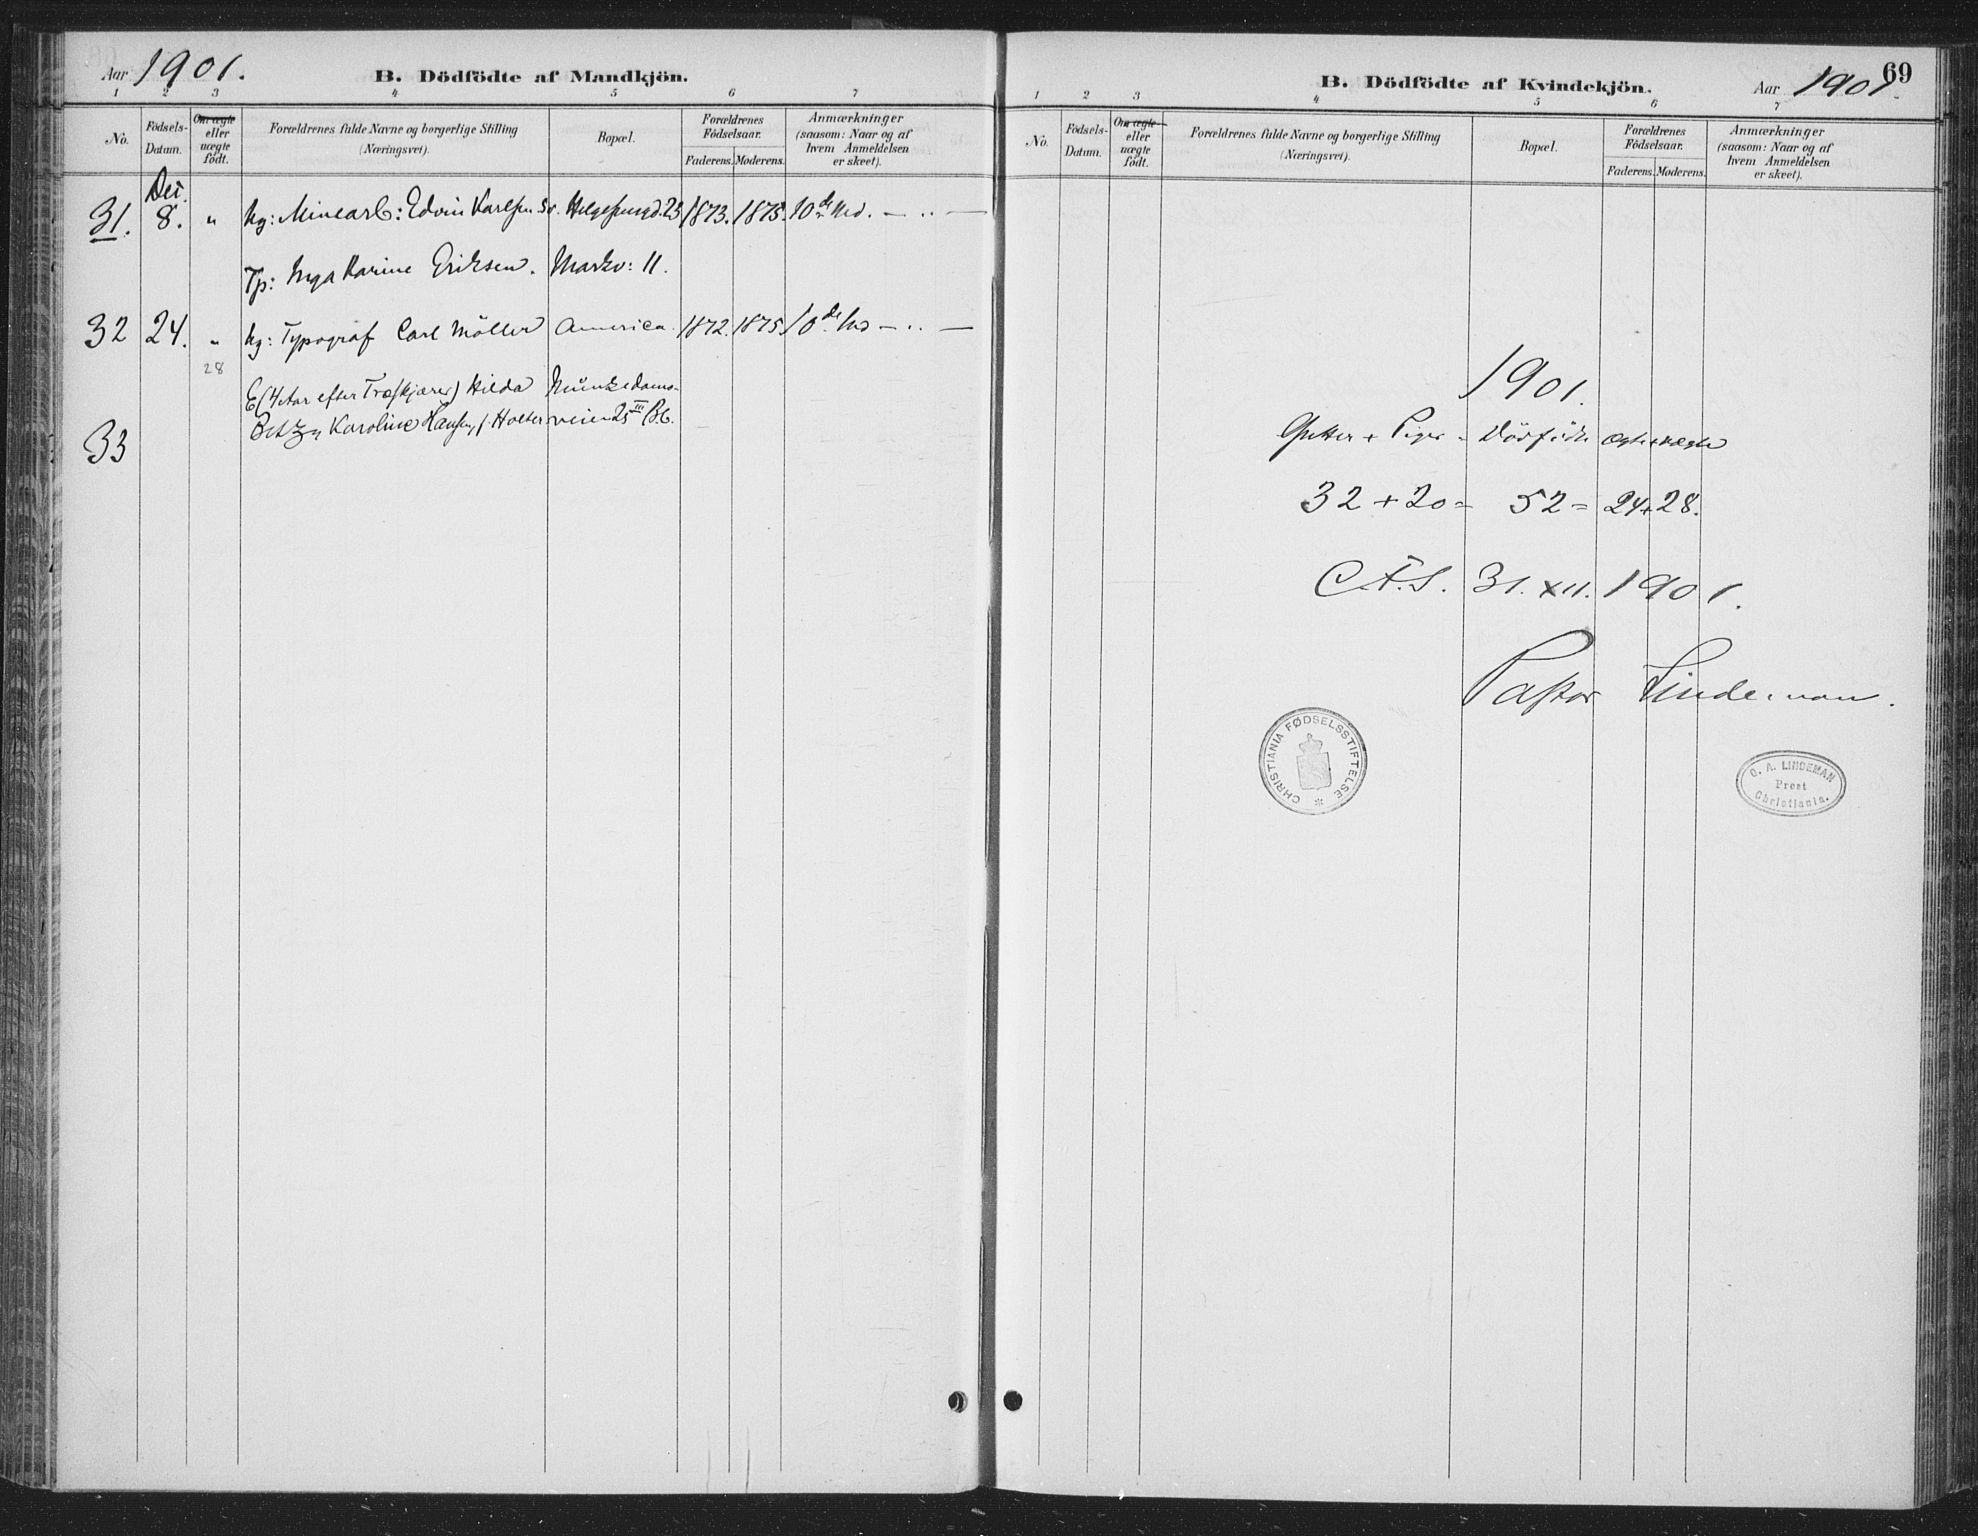 Aar 1901.
B. Dödfödte af Mandkjön.
1 2 3 4 5 6 7
No.
Födsels-
Datum.
Om ægte
eller
uægte
födt.
Forældrenes fulde Navne og borgerlige Stilling
(Næringsvei).
Bopæl.
Forældrenes
Födselsaar.
Faderens. Moderens.
Anmærkninger
(saasom: Naar og af
hvem Anmeldelsen
er skeet).
Dec.
31. 8. " Ug: Minearb: Edvin Karlsen 23 1873. 1875. 10de
Tp: Inga Karine Eriksen. Markv: 11.
32 24. " Ug: Typograf Carl Möller America. 1872. 1875. 10de
28
E (4 Aar efter Træskjærer) Hilda Munkedams-
Karoline Hansen f. Holter veien 25 III
33
69
B. Dödfödte af Kvindekjön.
Aar 1901.
1 2 3 4 5 6 7
No.
Födsels-
Datum.
Om ægte
eller
uægte
födt.
Forældrenes fulde Navne og borgerlige Stilling
(Næringsvei).
Bopæl.
Forældrenes
Födselsaar.
Faderens. Moderens.
Anmærkninger
(saasom: Naar og af
hvem Anmeldelsen
er skeet).
1901.
Gutter + Piger = Dödfödte ægte + uægte
32 + 20 = 52 = 24 + 28.
C.F.S. 31. XII. 1901.
Pastor Lindeman.
CHRISTIANIA FØDSELSSTIFTELSE
O. A. LINDEMAN
Prest
Christiania.